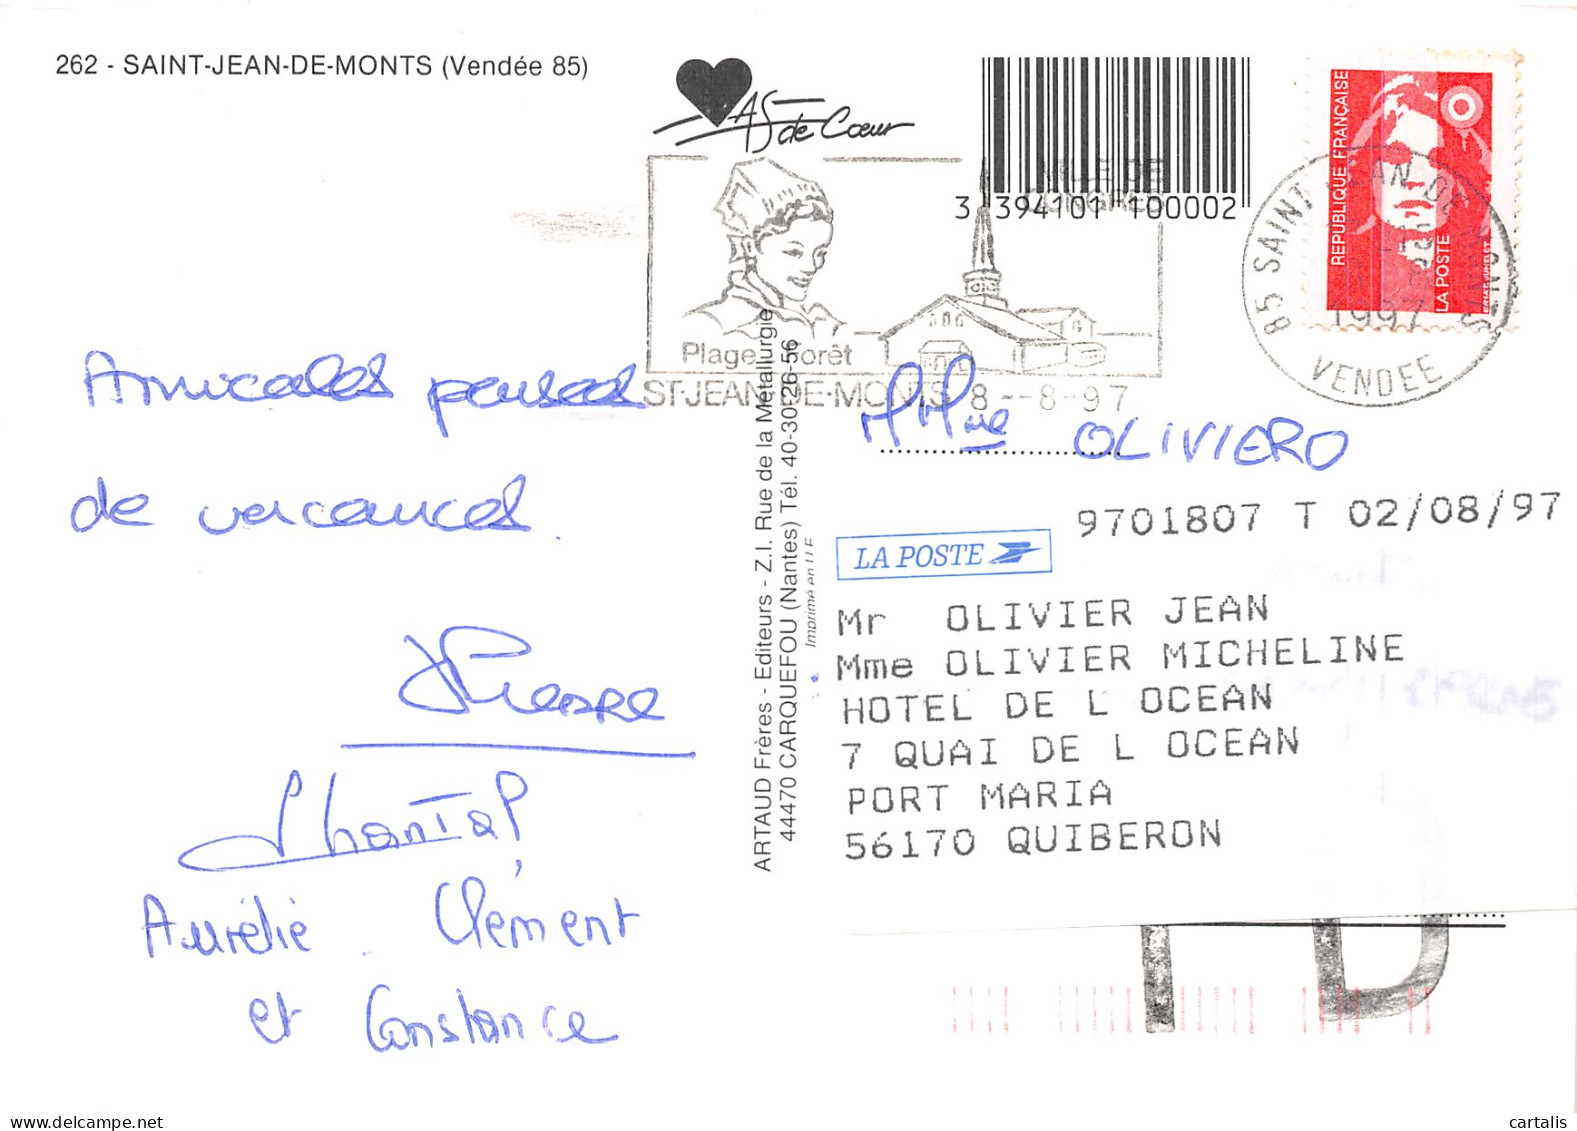 262 - SAINT-JEAN-DE-MONTS (Vendée 85)
AS de Cœur
3 394101 100002
VILLE DE
CONGRES
Plage Forêt
ST-JEAN-DE-MONTS 8--8-97
REPUBLIQUE FRANÇAISE
LA POSTE
85 SAINT JEAN DE MONTS
1997
VENDEE
Amicales pensées
de vacances.
Pierre
Chantal
Aurélie. Clément
et Constance
ARTAUD Frères - Editeurs - Z.I. Rue de la Métallurgie
44470 CARQUEFOU (Nantes) Tél. 40-30-26-56
Imprimé en
M Mme OLIVIERO
9701807 T 02/08/97
LA POSTE
Mr OLIVIER JEAN
Mme OLIVIER MICHELINE
HOTEL DE L OCEAN
7 QUAI DE L OCEAN
PORT MARIA
56170 QUIBERON
cartalis